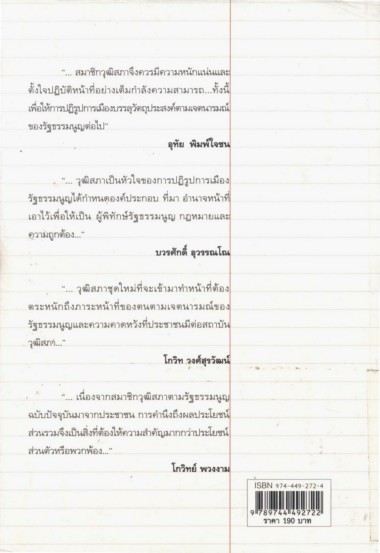 "... สมาชิกวุฒิสภาจึงควรมีความหนักแน่นและ
ตั้งใจปฏิบัติหน้าที่อย่างเต็มกำลังความสามารถ...ทั้งนี้
เพื่อให้การปฏิรูปการเมืองบรรลุวัตถุประสงค์ตามเจตนารมณ์
ของรัฐธรรมนูญต่อไป"
อุทัย พิมพ์ใจชน
"... วุฒิสภาเป็นหัวใจของการปฏิรูปการเมือง
รัฐธรรมนูญได้กำหนดองค์ประกอบ ที่มา อำนาจหน้าที่
เอาไว้เพื่อให้เป็น ผู้พิทักษ์รัฐธรรมนูญ กฎหมายและ
ความถูกต้อง..."
บวรศักดิ์ อุวรรณโณ
"... วุฒิสภาชุดใหม่ที่จะเข้ามาทำหน้าที่ต้อง
ตระหนักถึงภาระหน้าที่ของตนตามเจตนารมณ์ของ
รัฐธรรมนูญและความคาดหวังที่ประชาชนมีต่อสถาบัน
วุฒิสภา..."
โกวิท วงศ์สุรวัฒน์
"... เนื่องจากสมาชิกวุฒิสภาตามรัฐธรรมนูญ
ฉบับปัจจุบันมาจากประชาชน การคำนึงถึงผลประโยชน์
ส่วนรวมจึงเป็นสิ่งที่ต้องให้ความสำคัญมากกว่าประโยชน์
ส่วนตัวหรือพวกพ้อง..."
โกวิทย์ พวงงาม
ISBN 974-449-272-4
9 789744 492722
ราคา 190 บาท